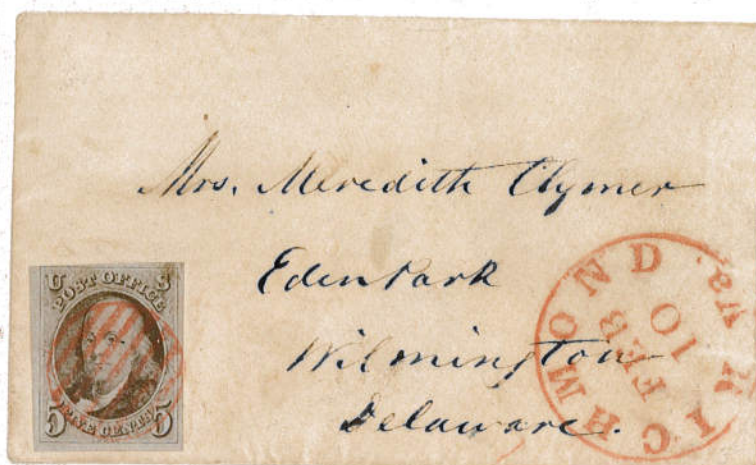 Mrs. Meredith Clymer
Eden Park
Wilmington
Delaware.
U S
POST OFFICE
FIVE CENTS
5 5
RICHMOND Va.
FEB
10